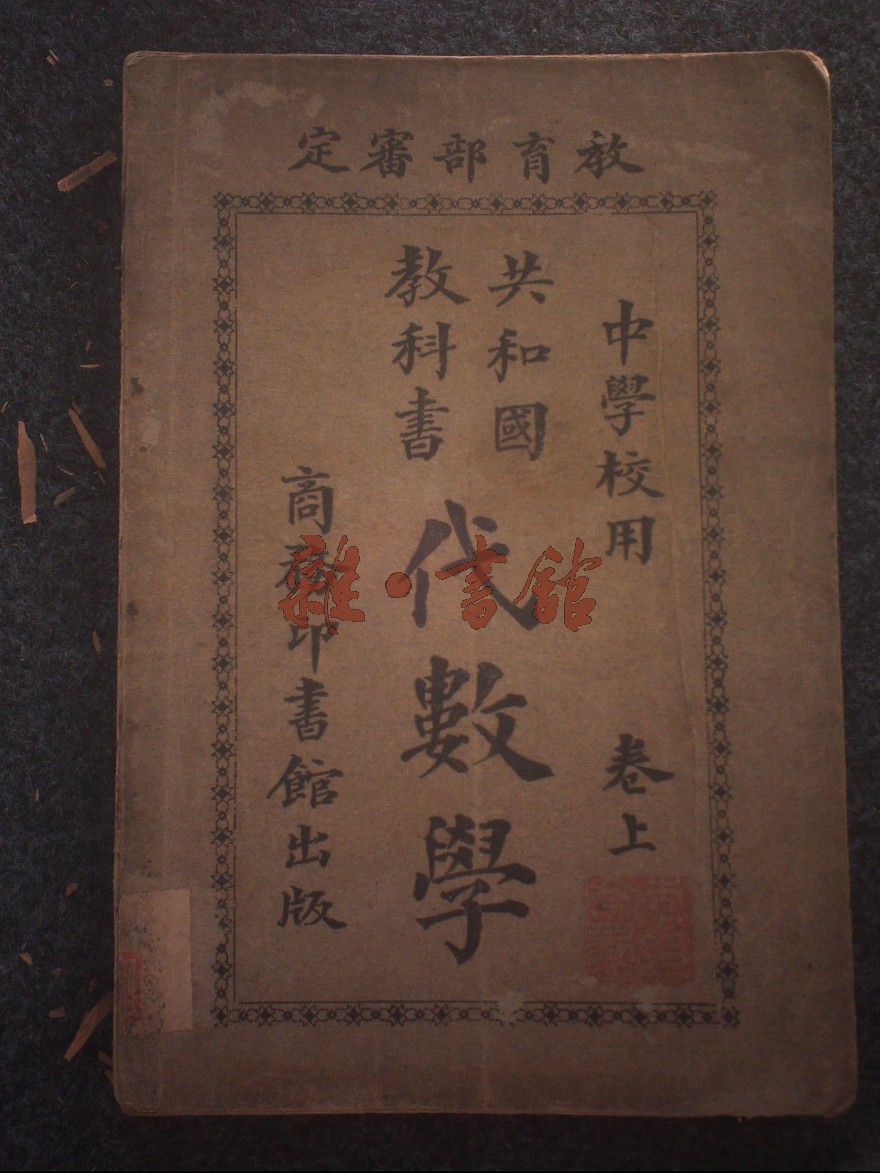 教育部審定
中學校用
卷上
共和國
教科書
代數學
商務印書館出版
雜·書館